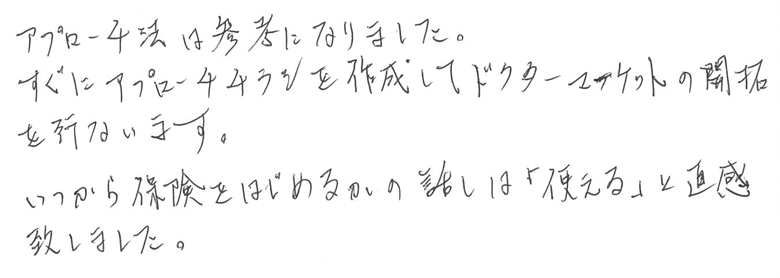 アプローチ法は参考になりました。
すぐにアプローチチラシを作成してドクターマーケットの開拓
を行ないます。
いつから保険をはじめるかの話しは「使える」と直感
致しました。